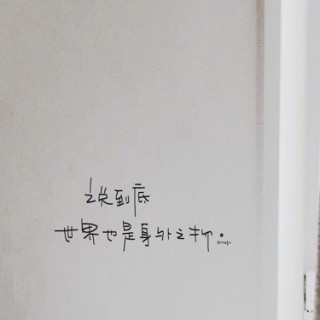 说到底
世界也是身外之物.